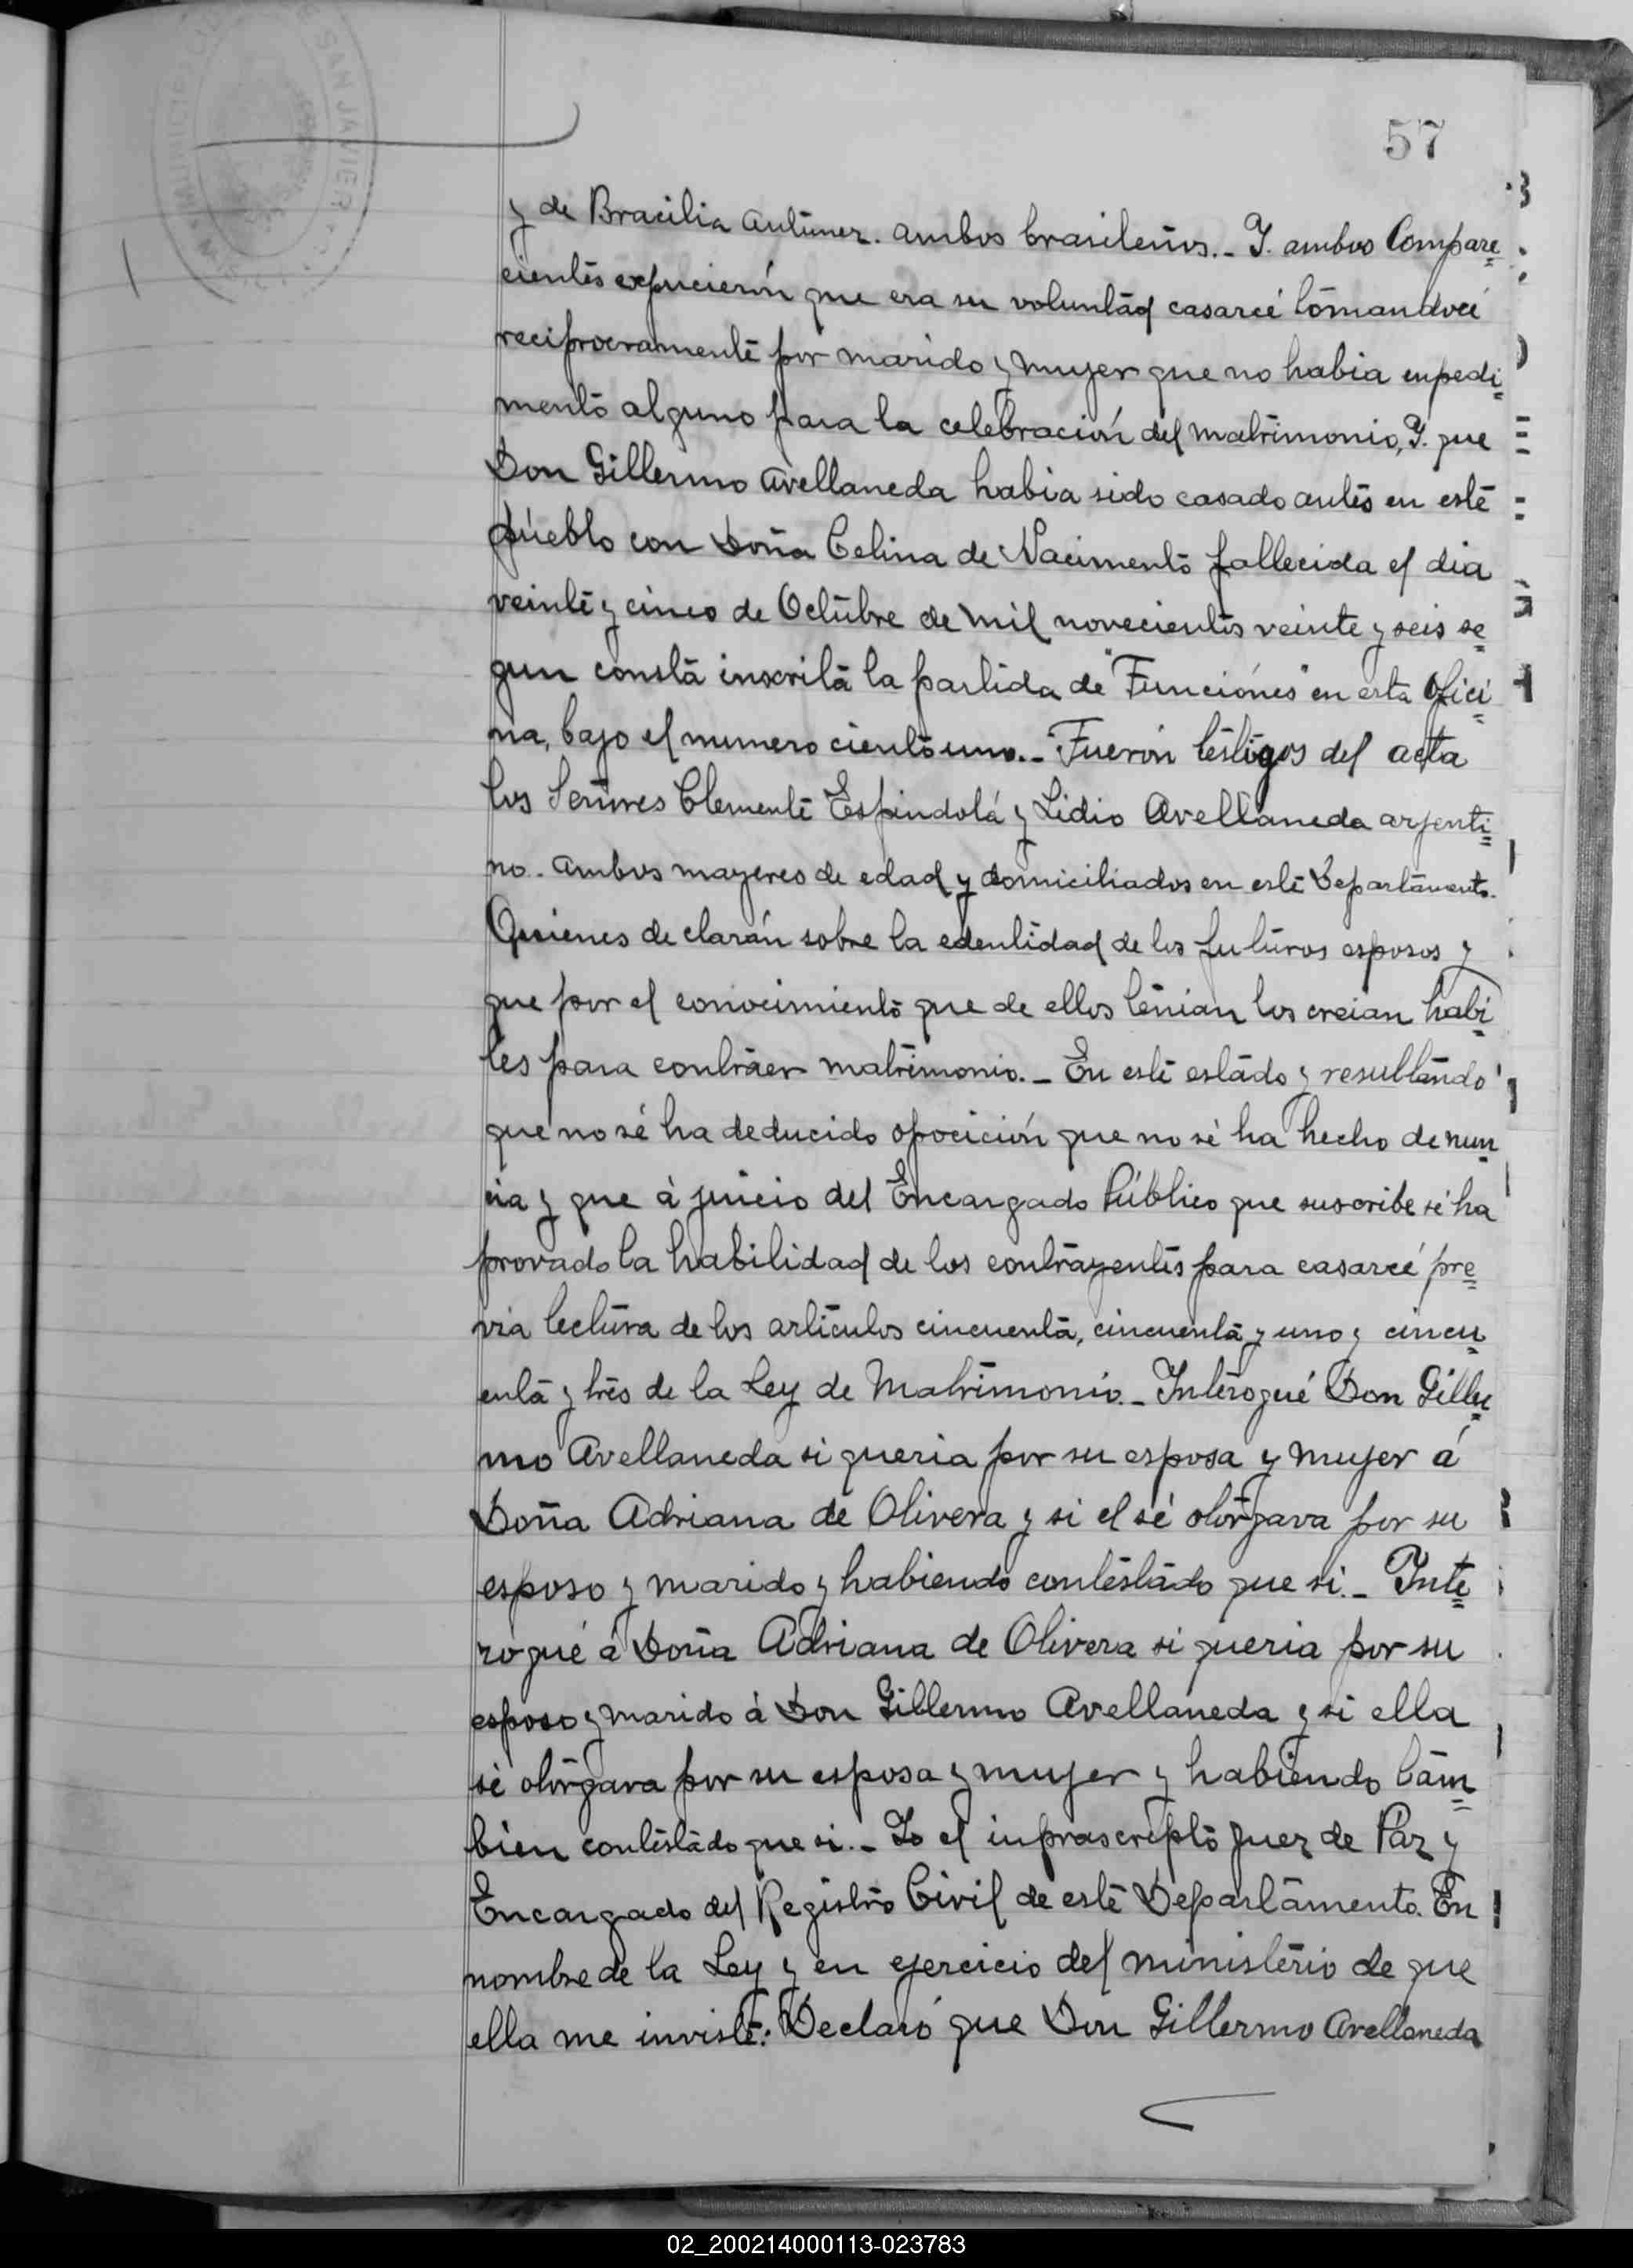 57
y de Bracilia Antúnez. ambos brasileños.- Y. ambos Compare
cientes expucierón que era su voluntad casarcé tomandocé
reciprocramente por marido y mujer que no habia enpedi
mento alguno para la celebración del matrimonio, Y. que
Don Gillermo Avellaneda habia sido casado antes en este
púeblo con Doña Celina de Nacimento fallecida el dia
veinte y cinco de Octubre de mil novecientos veinte y seis se
gun consta inscrita la partida de "Funciónes" en esta Ofici
na, bajo el numero ciento uno.- Fuerón testigos del acta
los Señores Clemente Espindolá y Lidio Avellaneda arjenti
no. ambos mayeres de edad y domiciliados en este Departamento.
Quienes de clarán sobre la edentidad de los futuros esposos y
que por el conocimiento que de ellos tenian los creian habi
les para contraer matrimonio.- En este estado y resultando
que no sé ha deducido opocición que no sé ha hecho denun
cia y que á juicio del Encargado Público que suscribe sé ha
provado la habilidad de los contrayentes para casarcé pre
via lectura de los articulos cincuenta, cincuenta y uno y cincu
enta y tres de la Ley de Matrimonio.- Interogué Don Giller
mo Avellaneda si queria por su esposa y mujer á
Doña Adriana de Olivera y si el sé otorgava por su
esposo y marido y habiendo contestado que si.- Inte
rogué á Doña Adriana de Olivera si queria por su
esposo y marido á Don Gillermo Avellaneda y si ella
sé otorgava por su esposa y mujer y habiendo tam
bien contestado que si.- Yo el inprascripto Juez de Páz y
Encargado del Registro Civil de este Departamento. En
nombre de la Ley y en ejercicio del ministerio de que
ella me inviste: Declaró que Don Gillermo Avellaneda
02_200214000113-023783